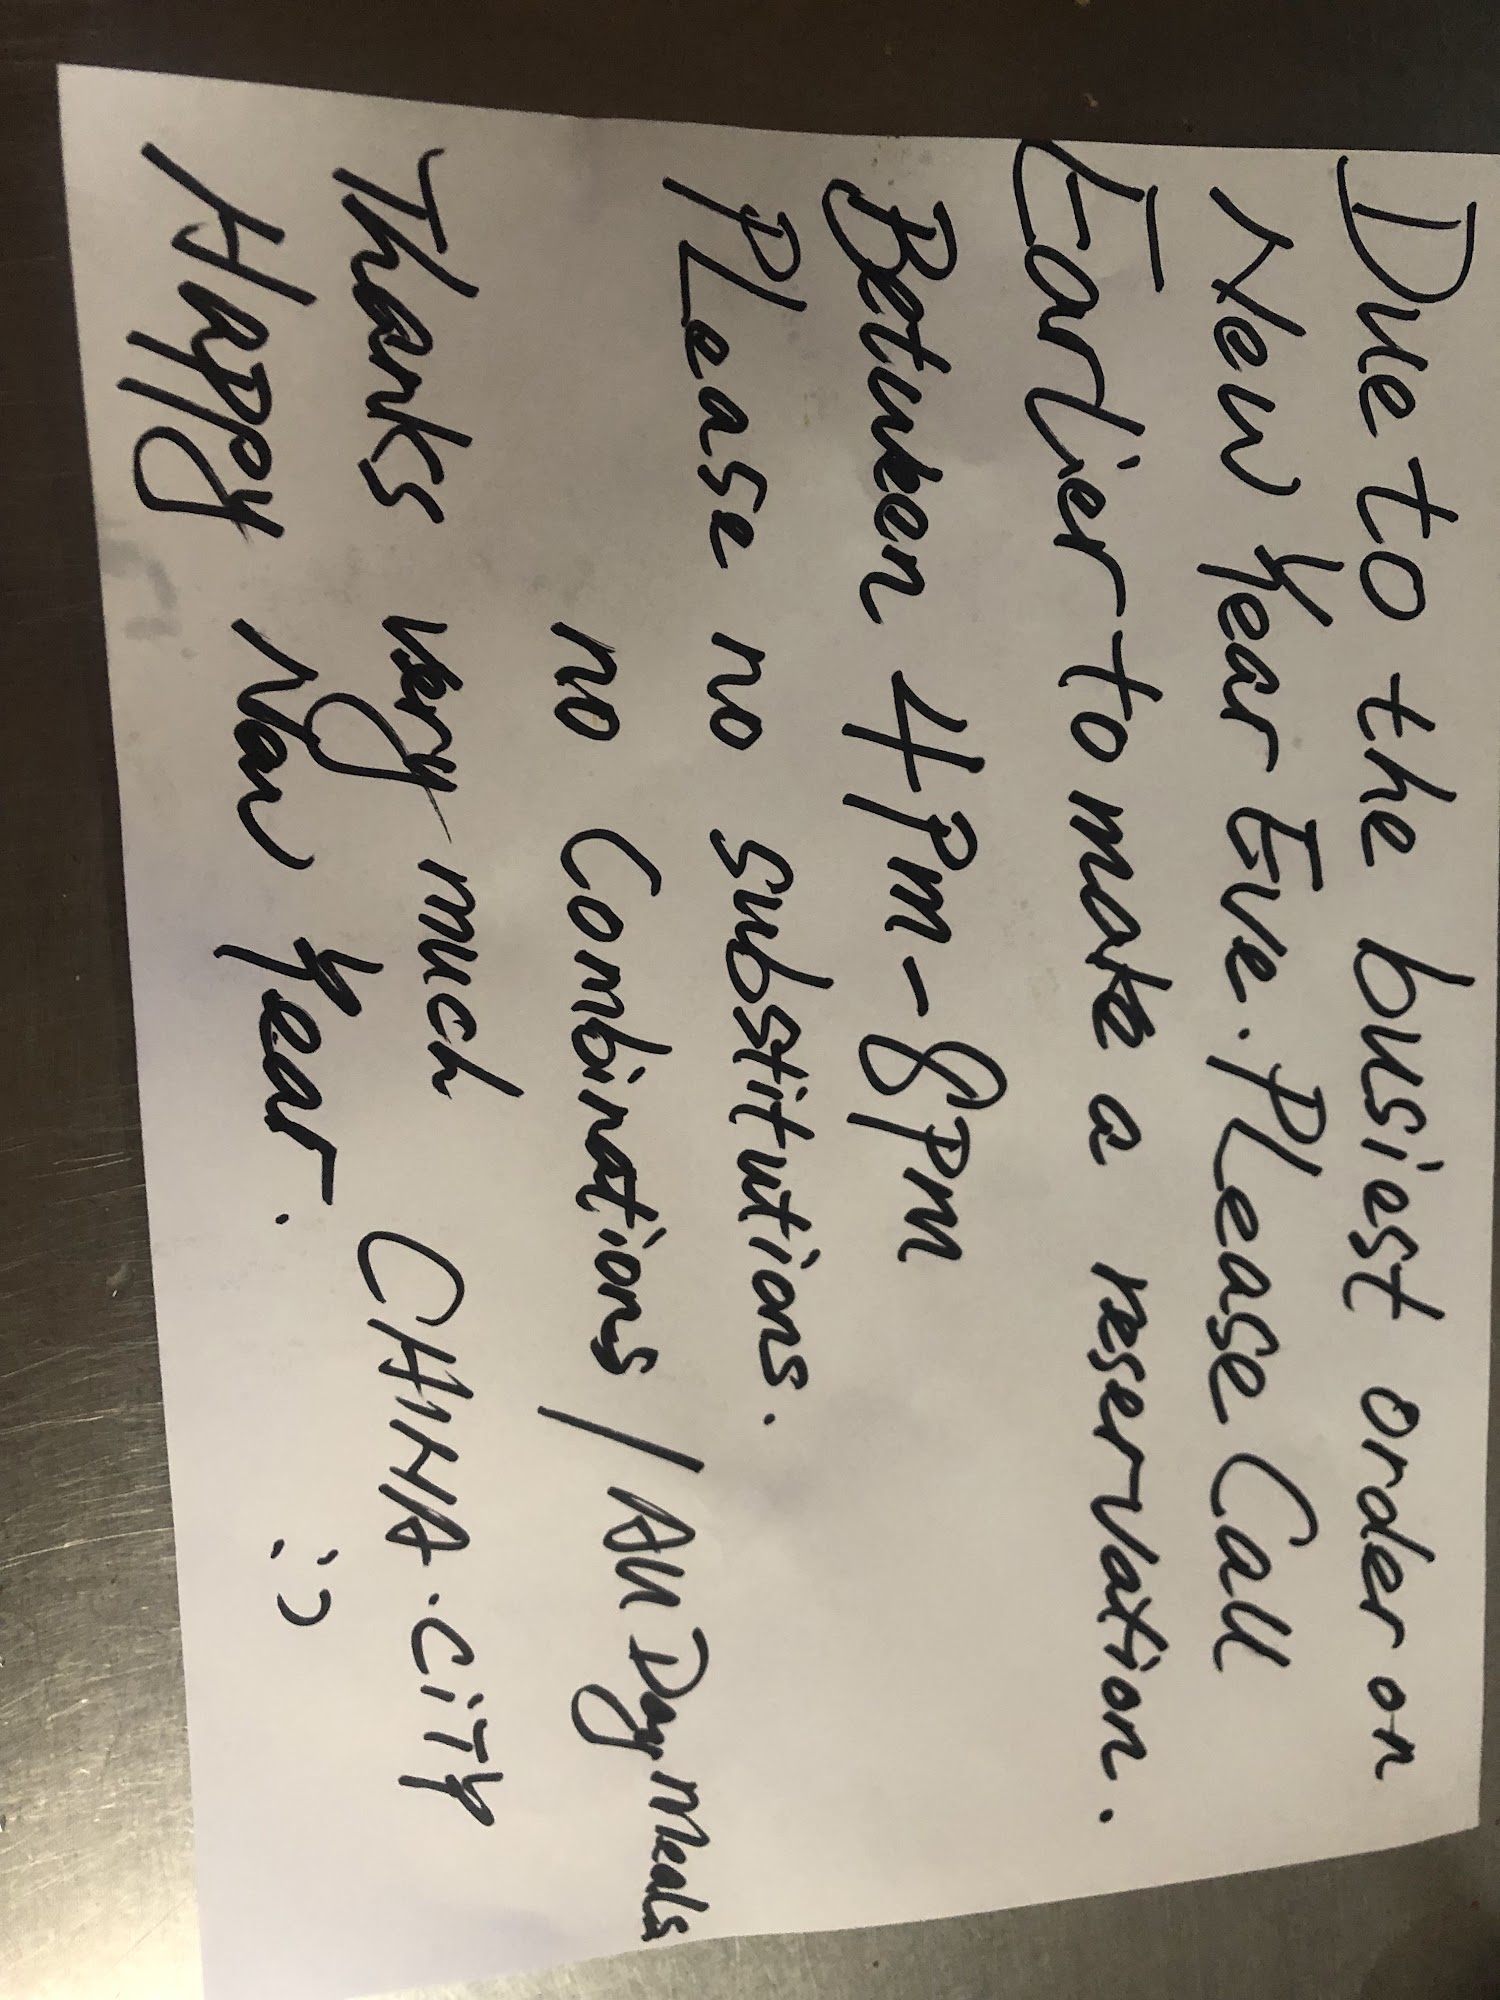 Due to the busiest order on
New Year Eve. PLease Call
Earlier to make a reservation.
Between 4pm - 8pm
PLease no substitutions.
no Combinations / All Day Meals
Thanks very much CHINA.CiTY
Happy New Year. :)